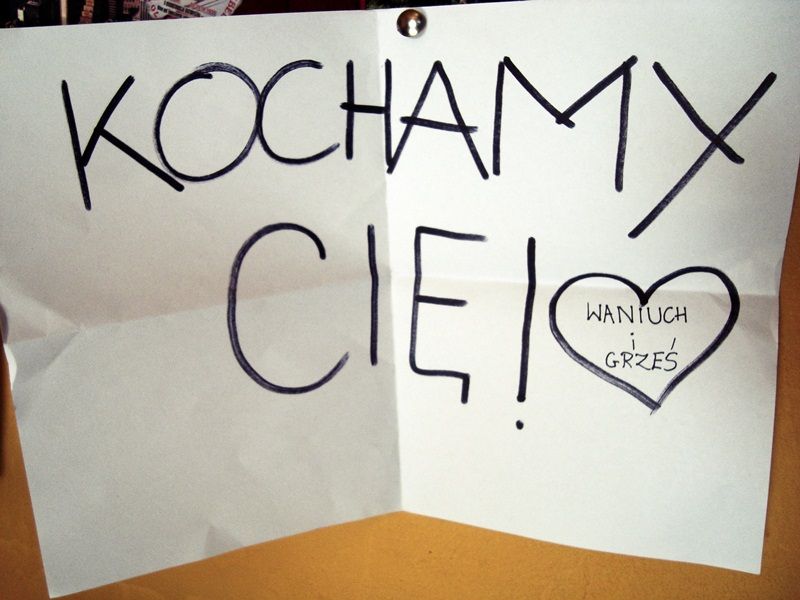 KOCHAMY
CIĘ!
WANIUCH
i
GRZEŚ